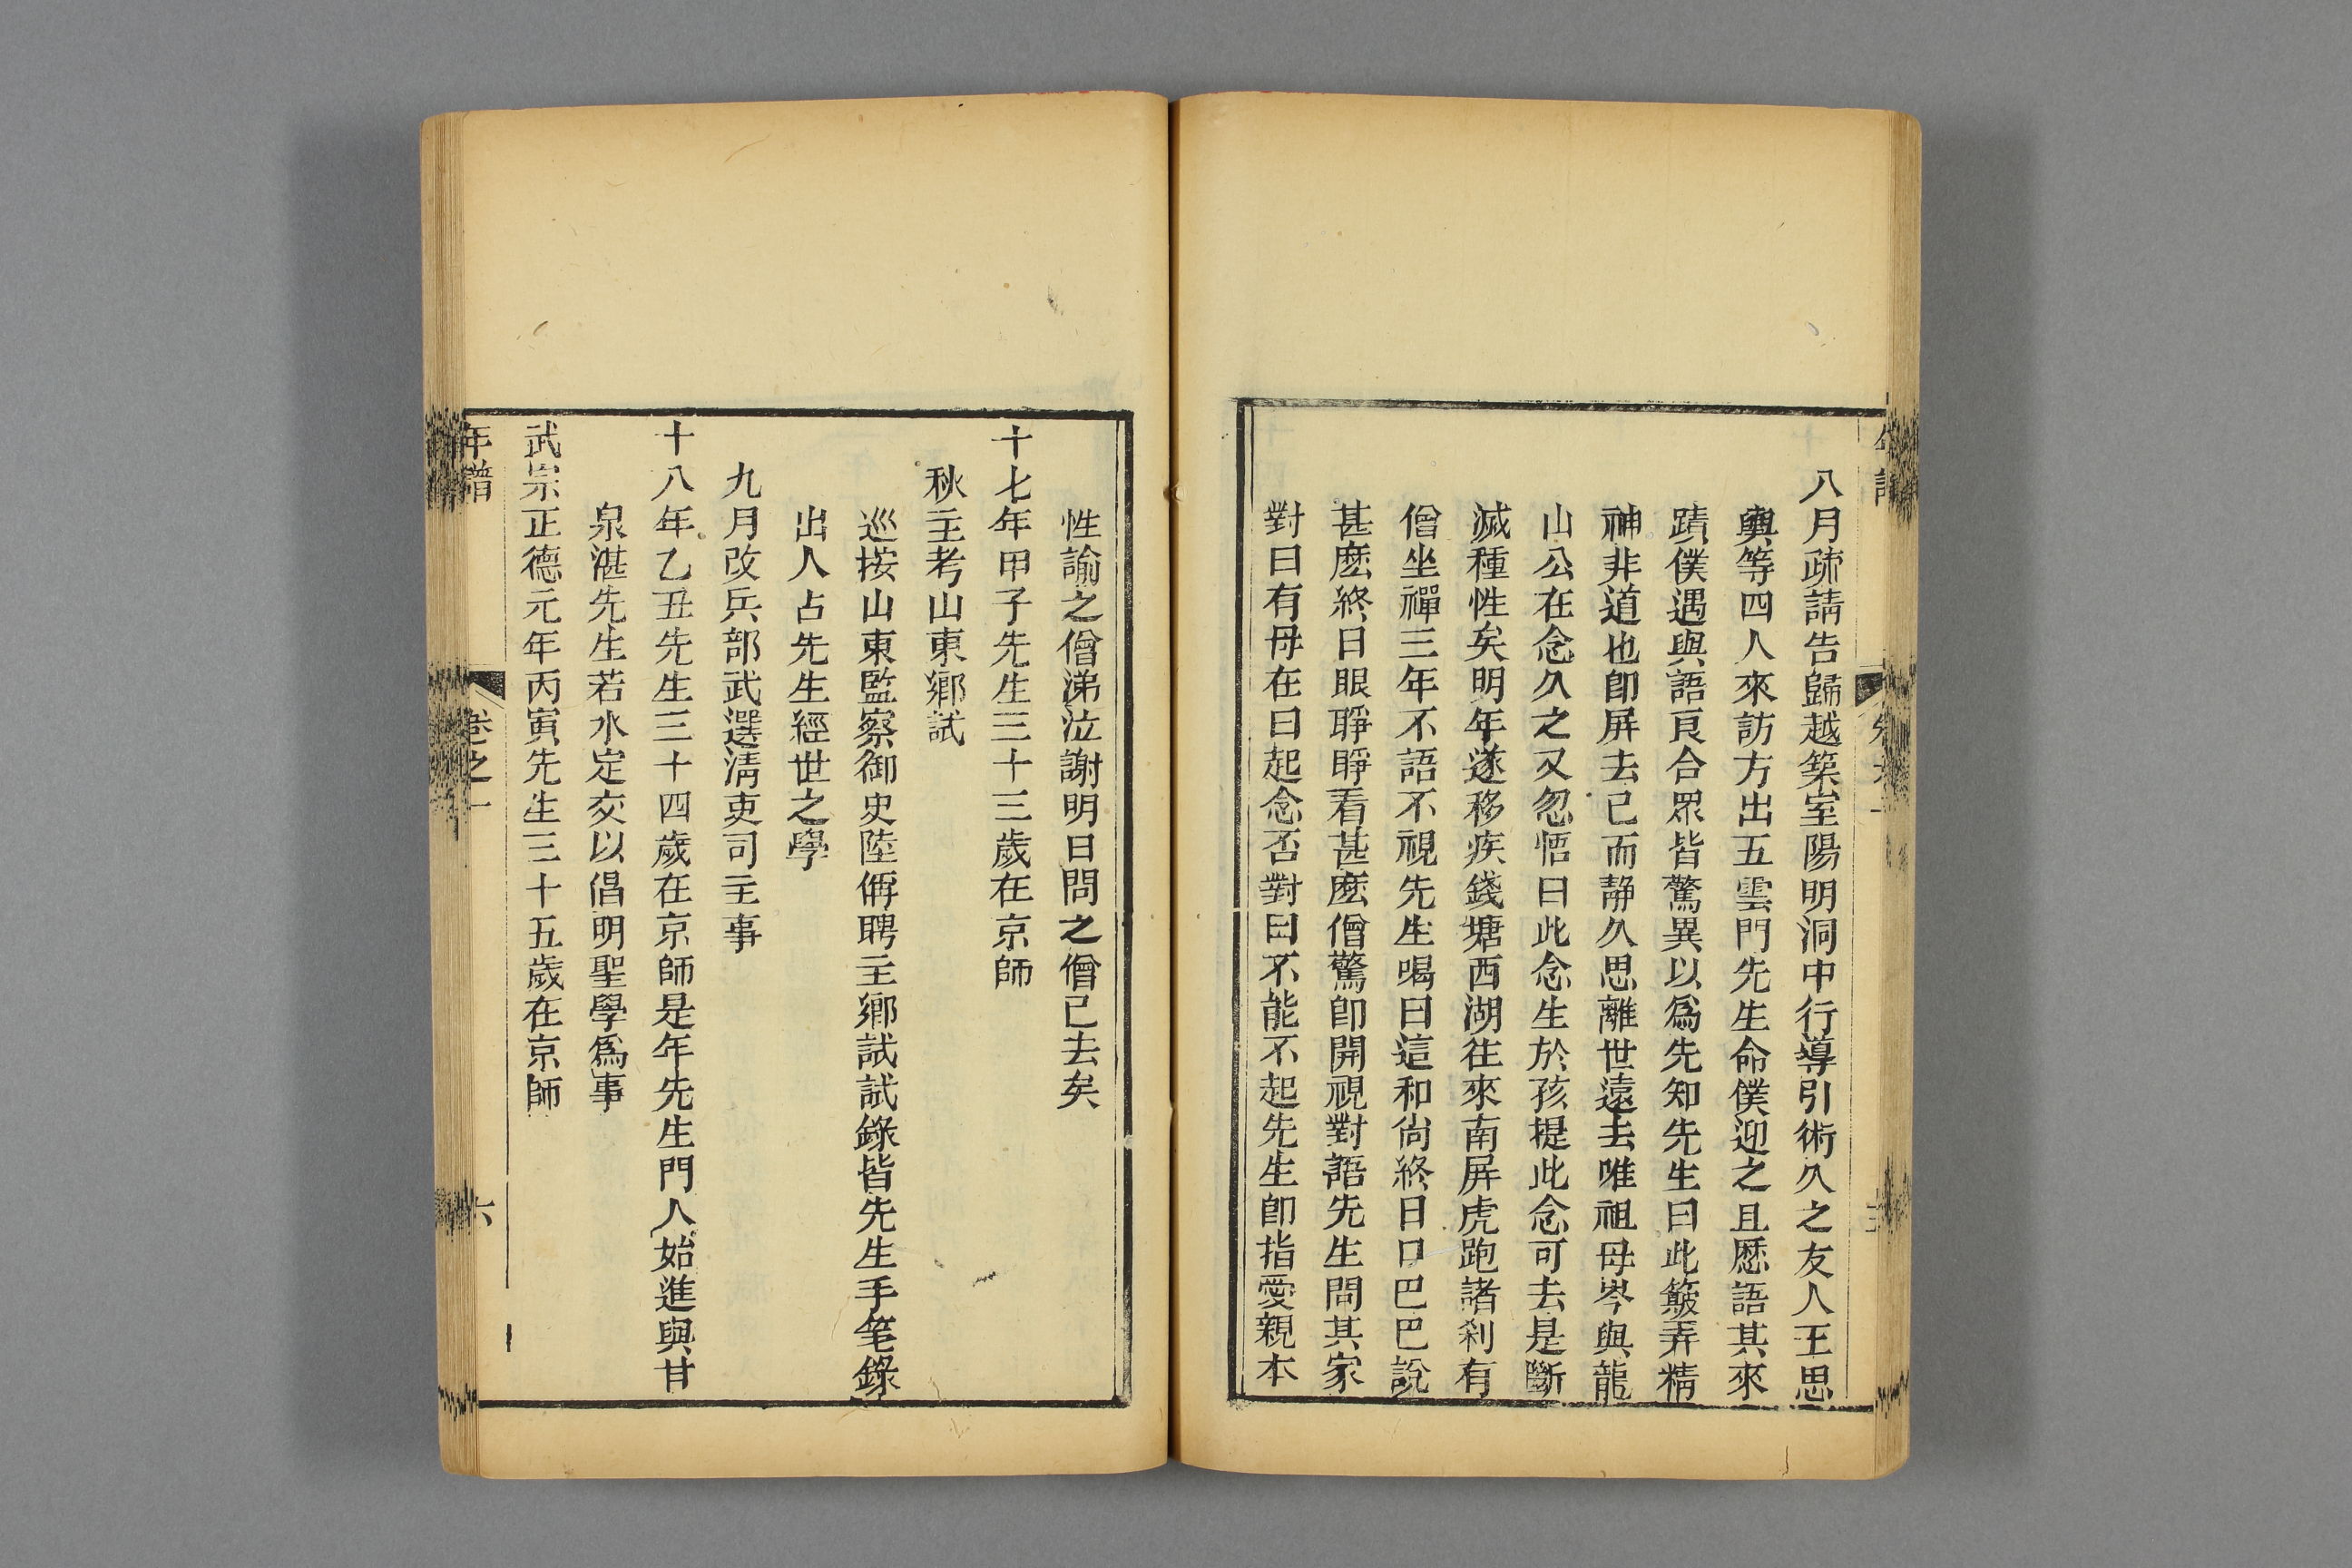 八月疏請告歸越築室陽明洞中行導引術久之友人王思
輿等四人來訪方出五雲門先生命僕迎之且歷語其來
蹟僕遇與語良合眾皆驚異以為先知先生曰此簸弄精
神非道也卽屏去已而靜久思離世遠去唯祖母岑與龍
山公在念久之又忽悟曰此念生於孩提此念可去是斷
滅種性矣明年遂移疾錢塘西湖往來南屏虎跑諸刹有
僧坐禪三年不語不視先生喝曰這和尙終日口巴巴說
甚麽終日眼睜睜看甚麽僧驚卽開視對語先生問其家
對曰有母在曰起念否對曰不能不起先生卽指愛親本
性諭之僧涕泣謝明日問之僧已去矣
十七年甲子先生三十三歲在京師
秋主考山東鄉試
巡按山東監察御史陸偁聘主鄉試試錄皆先生手筆錄
出人占先生經世之學
九月改兵部武選淸吏司主事
十八年乙丑先生三十四歲在京師是年先生門人始進與甘
泉湛先生若水定交以倡明聖學爲事
武宗正德元年丙寅先生三十五歲在京師
年譜 卷之一 六